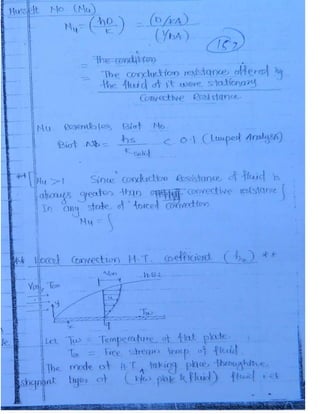 Nusselt No (Nu)
Nu = (hD/k) = (D/kA) / (1/hA)
157
= The condition
= The conduction resistance offered by
the fluid if it were stationary
Convective Resistance
Nu resembles Biot No
Biot No = hs / k solid < 0.1 (Lumped Analysis)
** Nu >1 Since conductive Resistance of fluid is
always greater than convective resistance
In any state of forced convection
Nu = ∫
** Local Convection H.T. coefficient (hx) **
T∞
Tw
x
Let Tw = Temperature of flat plate
T∞ = Free stream temp of fluid
The mode of H.T. taking place through
stagnant layer at (b/w plate & fluid) fluid